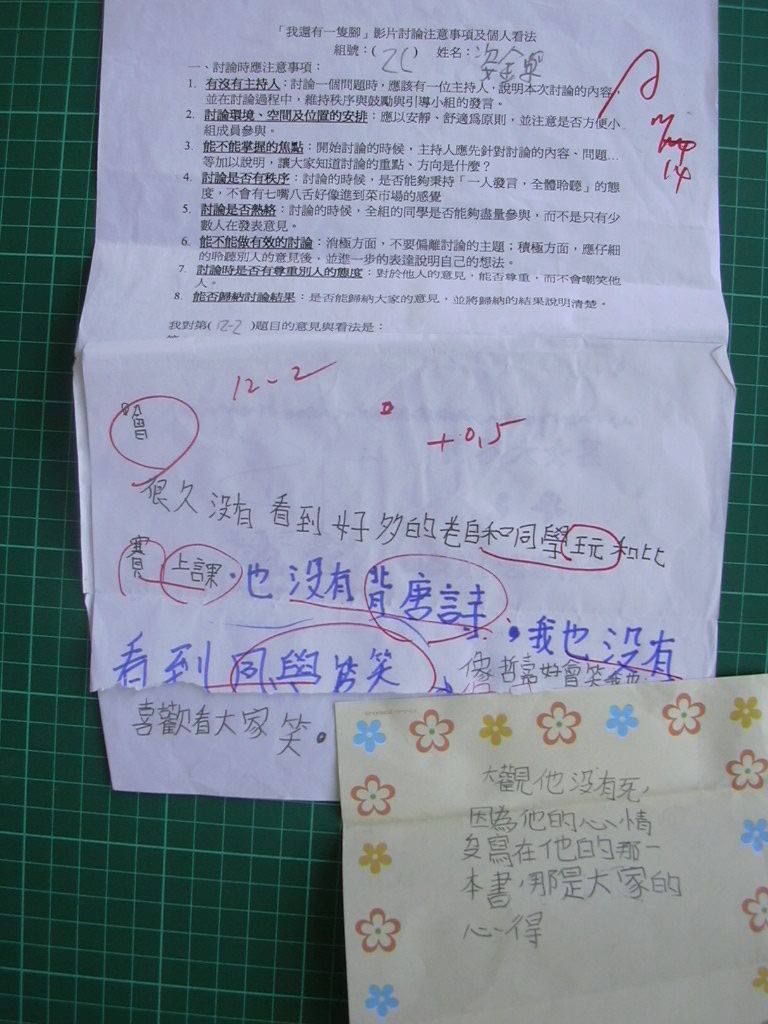 「我還有一隻腳」影片討論注意事項及個人看法
組號：( 2C ) 姓名：
一、討論時應注意事項：
1. 有沒有主持人：討論一個問題時，應該有一位主持人，說明本次討論的內容，
並在討論過程中，維持秩序與鼓勵與引導小組的發言。
2. 討論環境、空間及位置的安排：應以安靜、舒適爲原則，並注意是否方便小
組成員參與。
3. 能不能掌握的焦點：開始討論的時候，主持人應先針對討論的內容、問題…
等加以說明，讓大家知道討論的重點、方向是什麼？
4. 討論是否有秩序：討論的時候，是否能夠秉持「一人發言，全體聆聽」的態
度，不會有七嘴八舌好像進到菜市場的感覺
5. 討論是否熱絡：討論的時候，全組的同學是否能夠盡量參與，而不是只有少
數人在發表意見。
6. 能不能做有效的討論：消極方面，不要偏離討論的主題；積極方面，應仔細
的聆聽別人的意見後，並進一步的表達說明自己的想法。
7. 討論時是否有尊重別人的態度：對於他人的意見，能否尊重，而不會嘲笑他
人。
8. 能否歸納討論結果：是否能歸納大家的意見，並將歸納的結果說明清楚。
我對第( 12-2 )題目的意見與看法是：
A
14
12-2
+0.5
很久沒有看到好多的老師和同學玩和比
賽上課，也沒有背唐詩，我也沒有
看到同學皆笑
像哲嘉好會笑
喜歡看大家笑。
大觀他沒有死，
因為他的心情
沒寫在他的那一
本書，那是大家的
心得